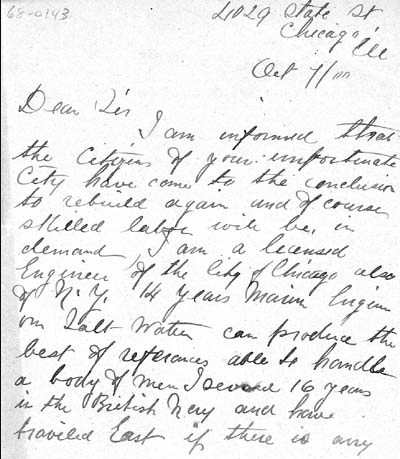 68-0143
4029 State St
Chicago Ill
Oct 7/00
Dear Sir
I am informed that
the Citizens of your unfortunate
City have come to the conclusion
to rebuild again and of course
skilled labor will be in
demand, I am a licensed
Engineer of the City of Chicago also
of N.Y. 14 years Marine Engineer
on Salt Water can produce the
best of referances able to handle
a body of men I served 16 years
in the British Navy and have
traviled East if there is any